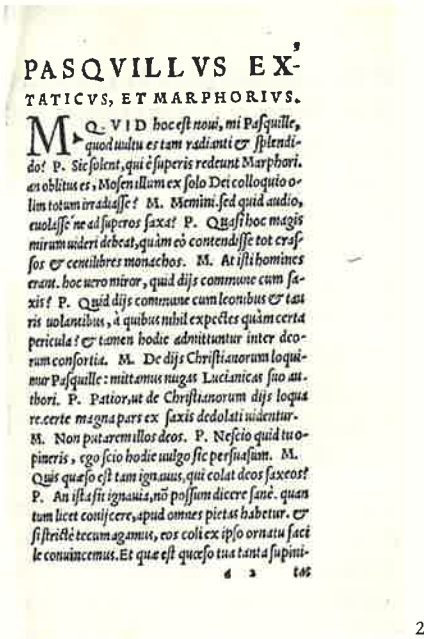 3
PASQVILLVS EX-
TATICVS, ET MARPHORIVS.
M. QVID hoc est noui, mi Pasquille,
quod uultu es tam radianti & splendi-
do? P. Sic solent, qui è superis redeunt Marphori.
an oblitus es, Mosen illum ex solo Dei colloquio o-
lim totum irradiasse? M. Memini. sed quid audio,
euolasse ne ad superos saxa? P. Quasi hoc magis
mirum uideri debeat, quàm eò contendisse tot cras-
sos & centilibres monachos. M. At isti homines
erant. hoc uero miror, quid dijs commune cum sa-
xis? P. Quid dijs commune cum leonibus & tau
ris uolantibus, à quibus nihil expectes quàm certa
pericula? & tamen hodie admittuntur inter deo-
rum consortia. M. De dijs Christianorum loqui-
mur Pasquille: mittamus nugas Lucianicas suo au-
thori. P. Patior, ut de Christianorum dijs loqua
re. certe magna pars ex saxis dedolati uidentur.
M. Non putarem illos deos. P. Nescio quid tu o-
pineris, ego scio hodie uulgo sic persuasum. M.
Quis quæso est tam ignauus, qui colat deos saxeos?
P. An ista sit ignauia, nō possum dicere sanè. quan
tum licet conijcere, apud omnes pietas habetur. &
si strictè tecum agamus, eos coli ex ipso ornatu faci
le conuincemus. Et quæ est quæso tua tanta supini-
d 2 tas
2